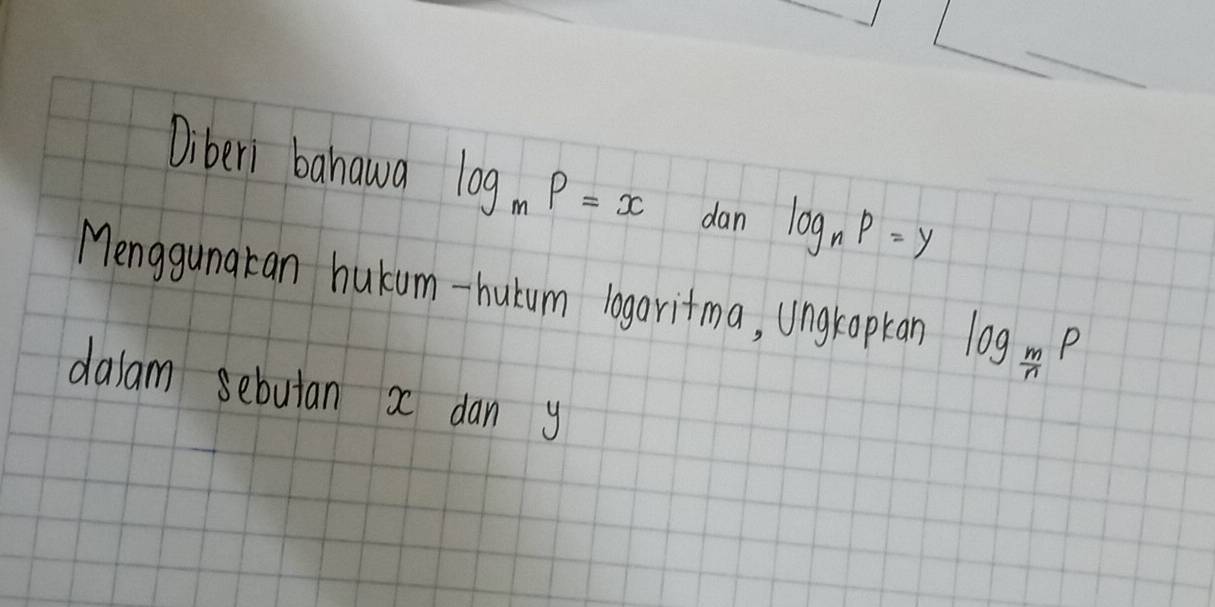 Diberi bahawa log_m P = x dan log_n P = y
Menggunakan hukum-hukum logaritma, Ungkapkan log_{m/n} P
dalam sebutan x dan y